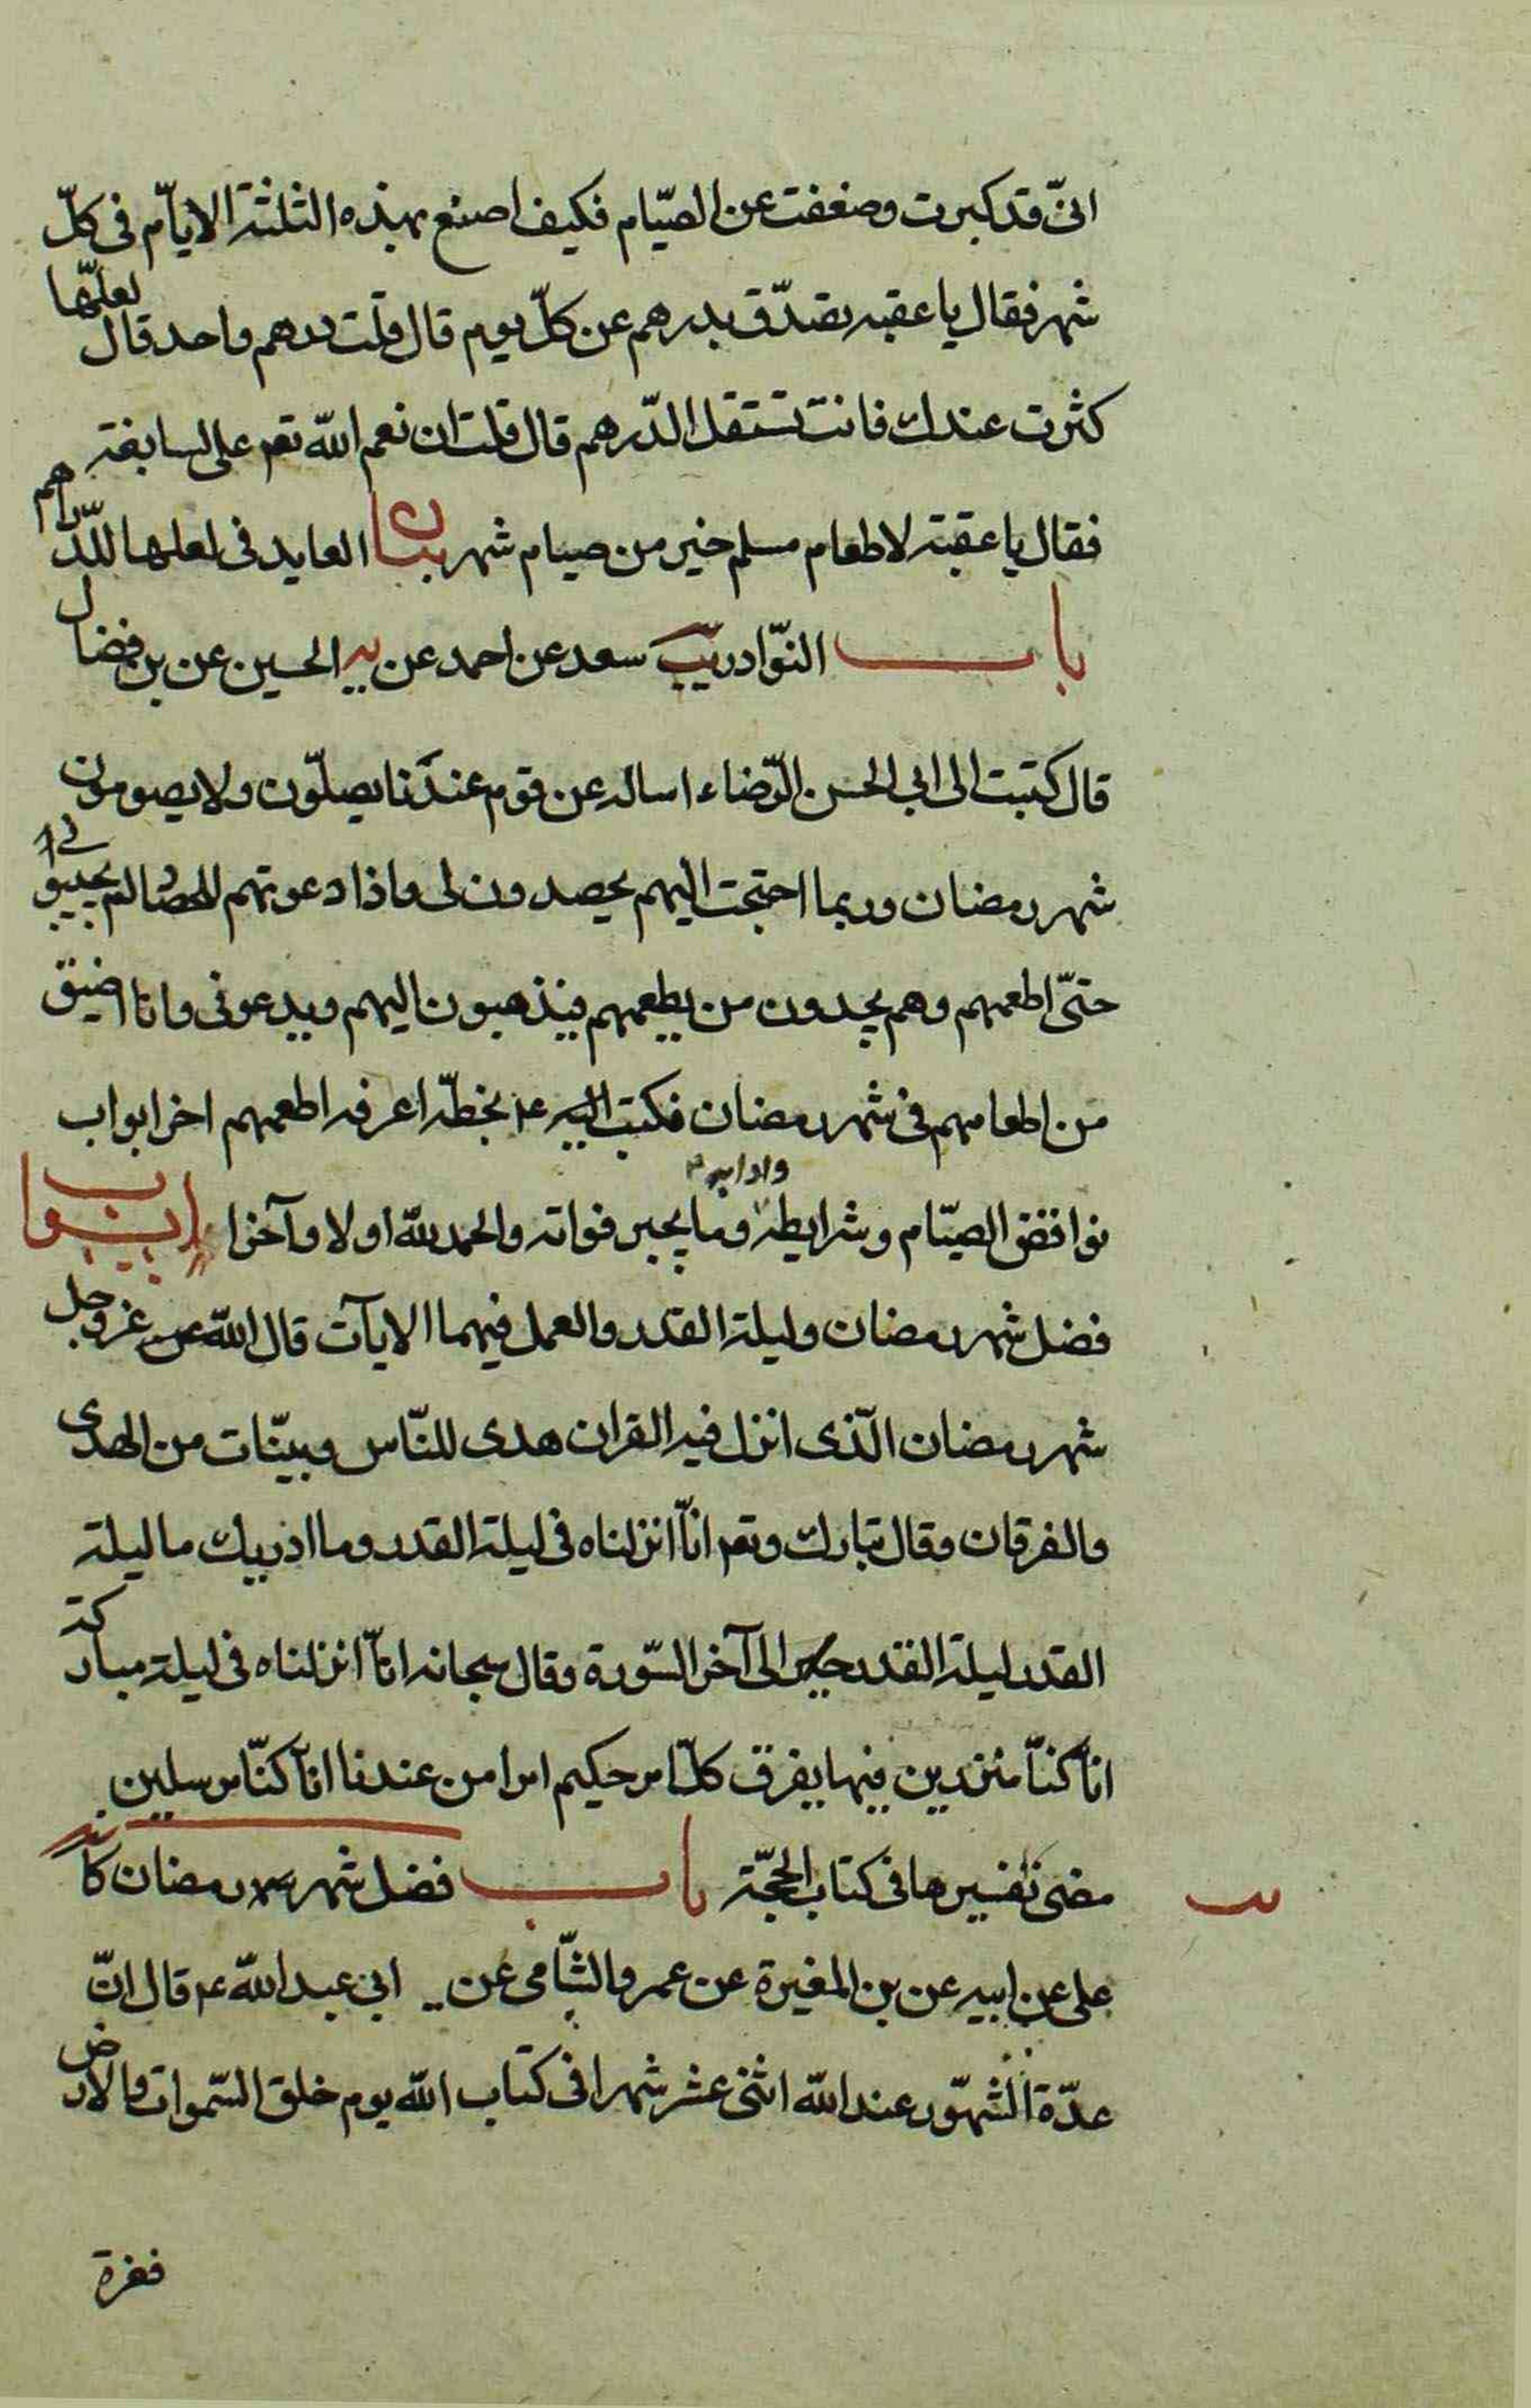 انّى قد كبرت وضعفت عن الصيّام فكيف اصنع بهذه الثلثة الايّام فى كلّ
شهر فقال يا عقبة تصدّق بدرهم عن كلّ يوم قال قلت درهم واحد قال لعلّها
كثرت عندك فانت تستقل الدّرهم قال قلت ان نعم الله تعم على لسابغة
فقال يا عقبة لاطعام مسلم خير من صيام شهر بيان العايد فى لعلها للدّراهم
باب النّوادر يب سعد عن احمد عن يه الحسين عن بن فضال
قال كتبت الى ابى الحسن الرّضاء اساله عن قوم عندنا يصلّون ولا يصومون
شهر رمضان وربما احتجت اليهم يحصدون لى واذا دعوتهم للحصاد لم يجيبو
حتّى اطعمهم وهم يجدون من يطعمهم فيذهبون اليهم ويدعونى وانا اضيق
من اطعامهم فى شهر رمضان فكتب اليه ع بخطّه اعرفه اطعمهم اخر ابواب
نواقض الصيّام وشرايطه وادابه وما يجبر فواته والحمد لله اولا وآخرا ابواب
فضل شهر رمضان وليلة القدر والعمل فيهما الايآت قال الله عزوجل
شهر رمضان الّذى انزل فيه القران هدى للنّاس وبيّنات من الهدى
والفرقان وقال تبارك وتعم انّا انزلناه فى ليلة القدر وما ادريك ما ليلة
القدر ليلة القدر خير الى آخر السّورة وقال سبحانه انّا انزلناه فى ليلة مباركة
انّا كنّا منذرين فيها يفرق كلّ امر حكيم امرا من عندنا انّا كنّا مرسلين
مضى تفسيرها فى كتاب الحجّة باب فضل شهر رمضان كا
على عن ابيه عن بن المغيرة عن عمرو الشّامى عن ابى عبد الله ع قال انّ
عدّة الشهّور عند الله اثنى عشر شهرا فى كتاب الله يوم خلق السّموات والارض
فغرة